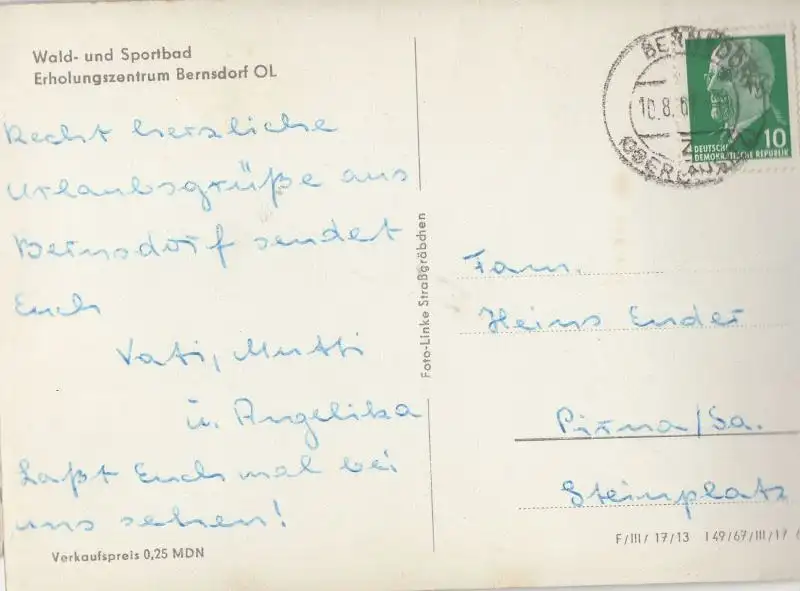 Wald- und Sportbad
Erholungszentrum Bernsdorf OL
Recht herzliche
Urlaubsgrüße aus
Bernsdorf sendet
Euch
Vati, Mutti
u. Angelika
Laßt Euch mal bei
uns sehen!
Verkaufspreis 0,25 MDN
Foto-Linke Straßgräbchen
BERNSDORF
10.8.6
OBERLAUSITZ
10
DEUTSCHE
DEMOKRATISCHE REPUBLIK
Fam.
Heinz Ender
Pirna/Sa.
Steinplatz
F/III/ 17/13 I 49/67/III/17 6